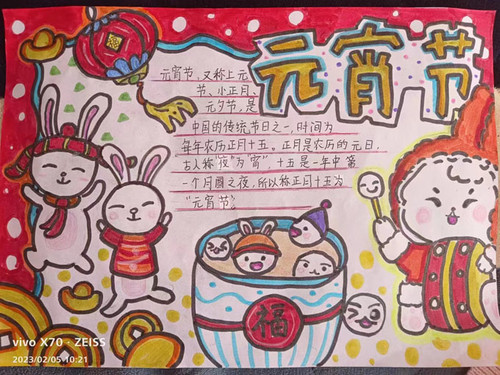 元宵节
元宵节,又称上元
节、小正月、
元夕节,是
中国的传统节日之一,时间为
每年农历正月十五。正月是农历的元日,
古人称“夜”为“宵”,十五是一年中第
一个月圆之夜,所以称正月十五为
“元宵节”
福
vivo X70 · ZEISS
2023/02/05 10:21